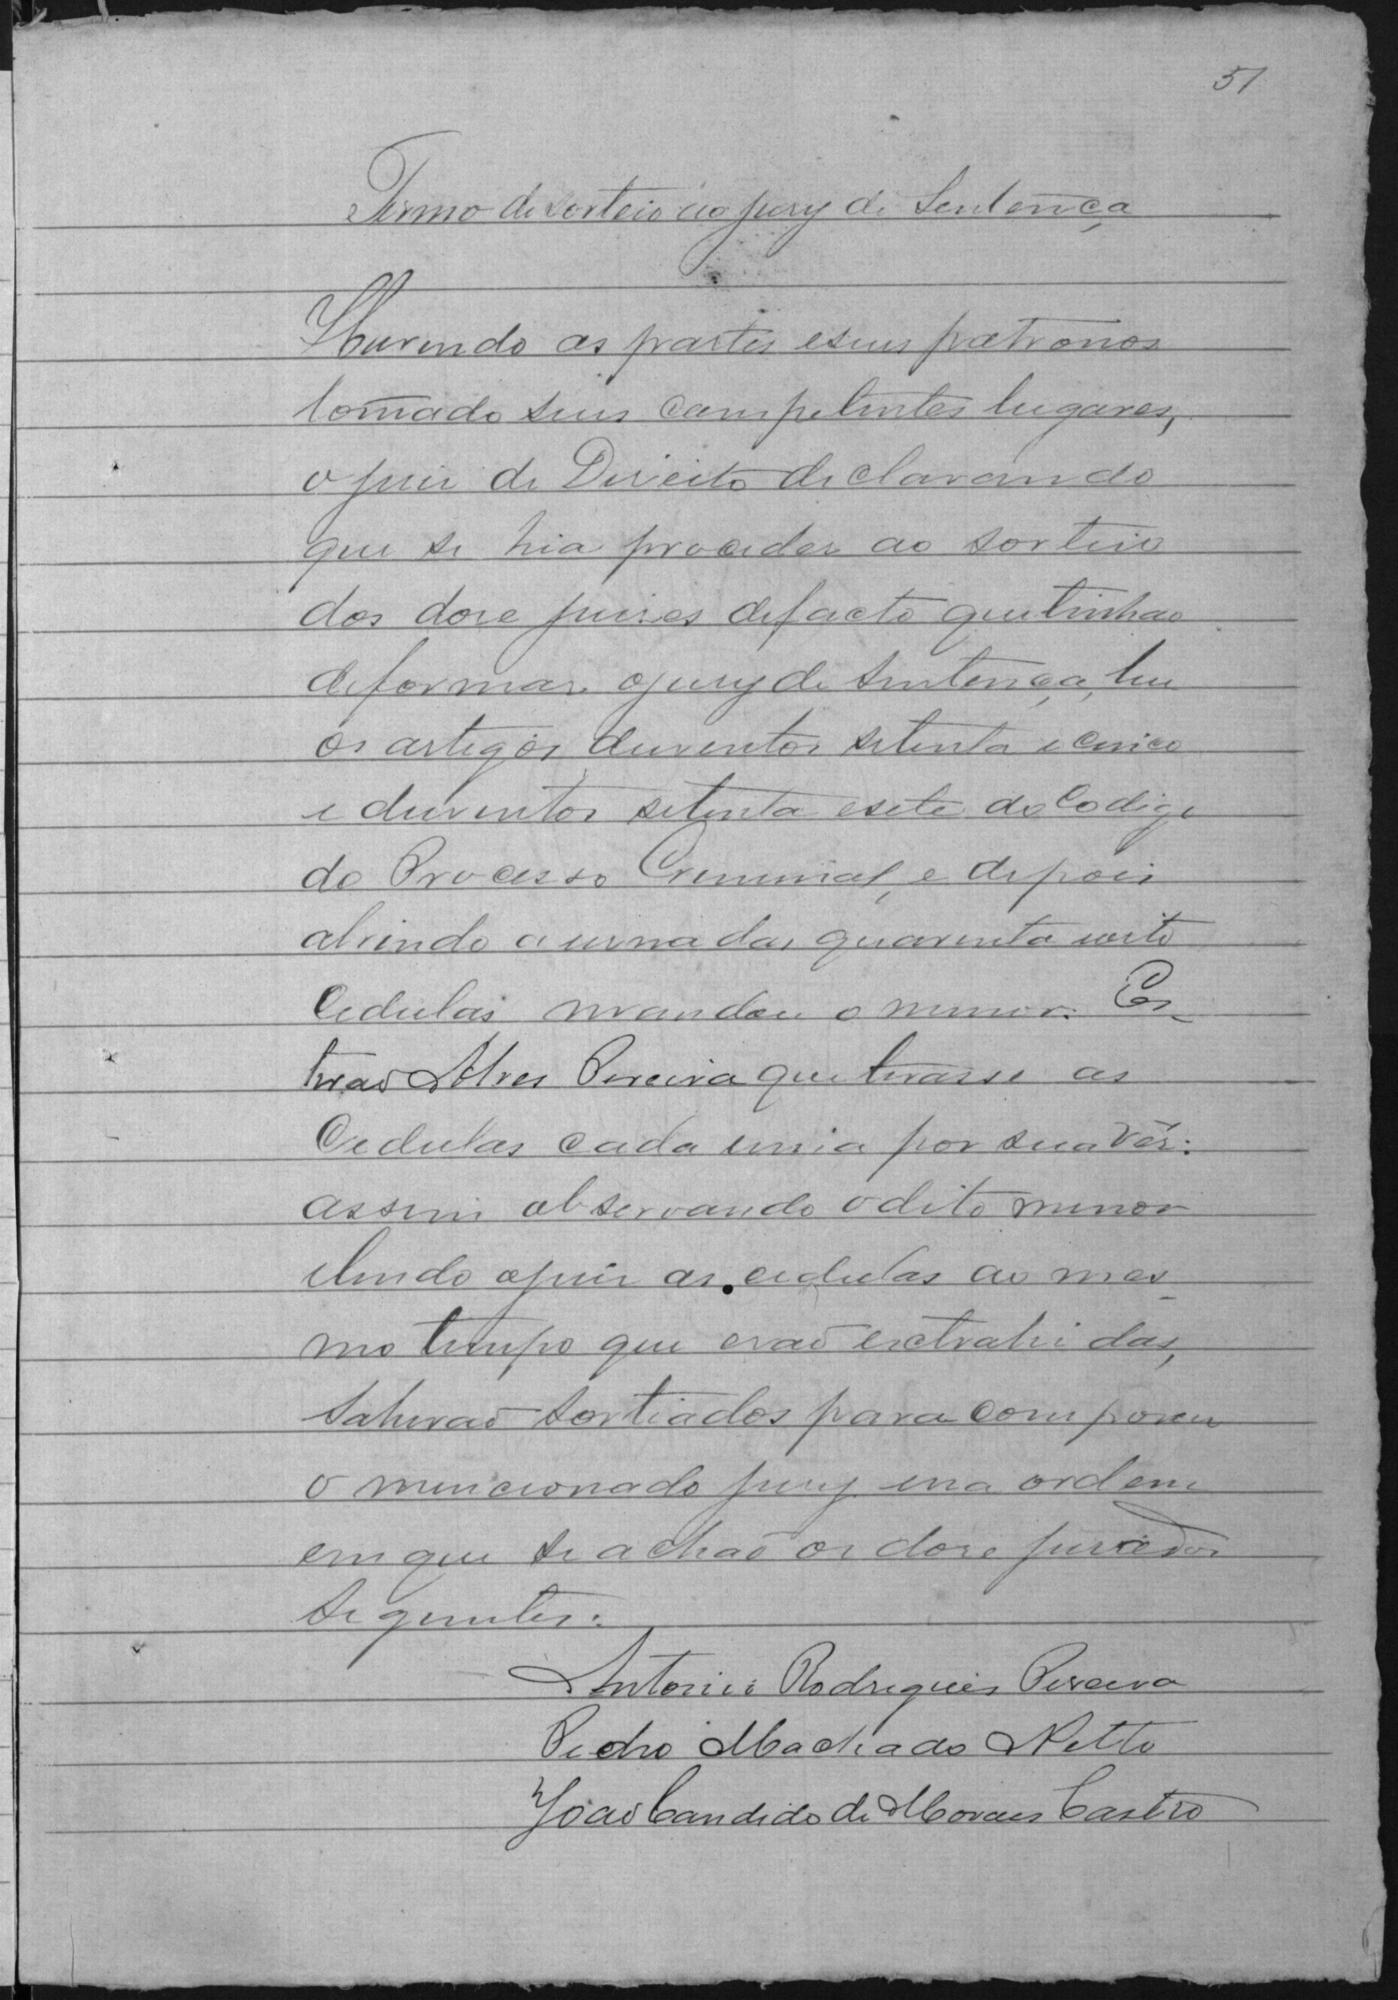 51
Termo de sorteio do jury de Sentença
Havendo as partes e seus patronos
tomado seus competentes lugares,
o juiz de Direito declarando
que se hia proceder ao sorteio
dos doze juizes de facto que tinhao
de formar o jury de sentença, leu
os artigos duzentos setenta e cinco
e duzentos setenta e sete do Codigo
do Processo Criminal, e depois
abrindo a urna das quarenta e oito
Cedulas mandou o menor.
Alves Pereira que tirasse as
Cedulas cada uma por sua vez:
assim observando o dito menor
lendo o juiz as cedulas ao mes-
mo tempo que erao extrahidas,
sahirao sortiados para comporem
o mencionado jury na ordem
em que se achao os doze jurados
seguintes:
Antonio Rodrigues Pereira
Pedro Machado Netto
Joao Candido de Moraes Castro